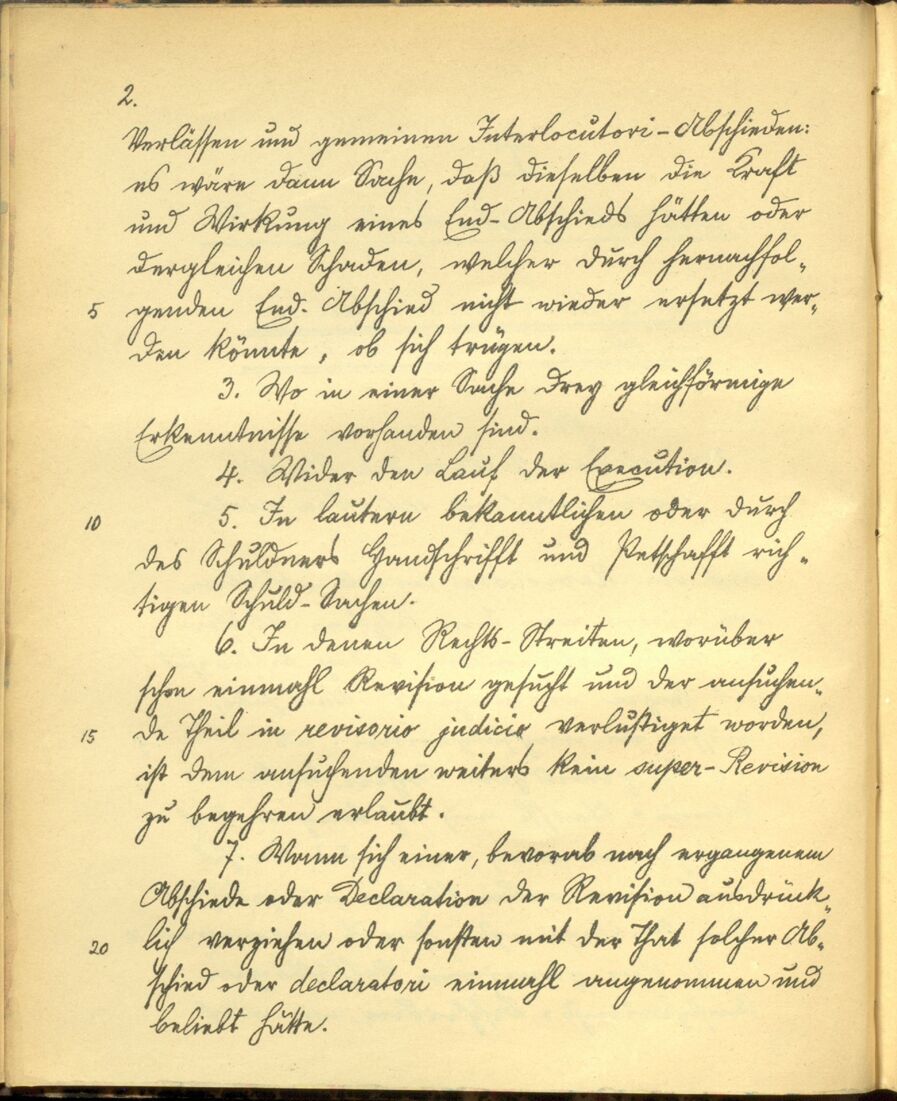 2.
Verlässen und gemeinen Interlocutori-Abschieden:
es wäre dann Sache, daß dieselben die Kraft
und Wirkung eines End-Abschieds hätten oder
dergleichen Schaden, welcher durch hernachfol-
5 genden End-Abschied nicht wieder ersetzt wer-
den könnte, ob sich trügen.
3. Wo in einer Sache drey gleichförmige
Erkenntnisse vorhanden sind.
4. Wider den Lauf der Execution.
10 5. In lautern bekanntlichen oder durch
des Schuldners Handschrifft und Petschafft rich-
tigen Schuld-Sachen.
6. In denen Rechts-Streiten, worüber
schon einmahl Revision gesucht und der ansuchen-
15 de Theil in revisorio judicio verlustiget worden,
ist dem ansuchenden weiters kein super-Revision
zu begehren erlaubt.
7. Wann sich einer, bevorab nach ergangenem
Abschiede oder Declaration der Revision ausdrück-
20 lich verziehen oder sonsten mit der That solcher Ab-
schied oder declaratori einmahl angenommen und
beliebt hätte.